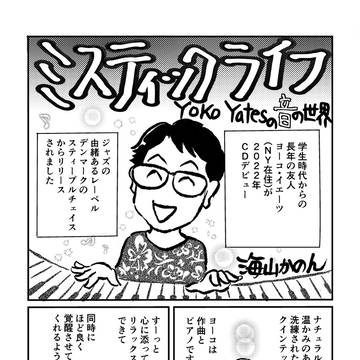 ミスティックライフ
Yoko Yatesの音の世界
学生時代からの
長年の友人
ヨーコ・イエーツ
(NY在住)が
2022年
CDデビュー
ジャズの
由緒あるレーベル
デンマークの
スティープルチェイス
からリリース
されました
海山かのん
ナチュラ
温かみのあ
洗練された
クインテ
ヨーコは
作曲と
ピアノです
すーっと
心に添って
リラックス
できて
同時に
ほど良く
覚醒させて
くれるよう